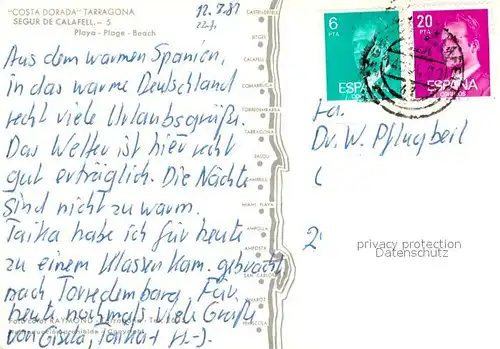 "COSTA DORADA" TARRAGONA
SEGUR DE CALAFELL. - 5
Playa - Plage - Beach
12.7.81
Aus dem warmen Spanien,
in das warme Deutschland
recht viele Urlaubsgrüße.
Das Wetter ist hier recht
gut erträglich. Die Nächte
sind nicht zu warm.
Taika habe ich für heute
zu einem Klassenkam. gebracht
nach Torredembarra. Für
heute nochmals viele Grüße
von Gisela, Taika + H-J.
Foto color RAYMOND
CASTELLDEFELS
SITGES
CALAFELL
COMARRUGA
TORREDEMBARRA
TARRAGONA
SALOU
CAMBRILS
MIAMI PLAYA
AMPOLLA
AMPOSTA
SAN CARLOS
VINAROZ
PEÑISCOLA
6
PTA
ESPAÑA
20
PTA
ESPAÑA
CORREOS
Fa.
Dr. W. Pflugbeil
privacy protection
Datenschutz